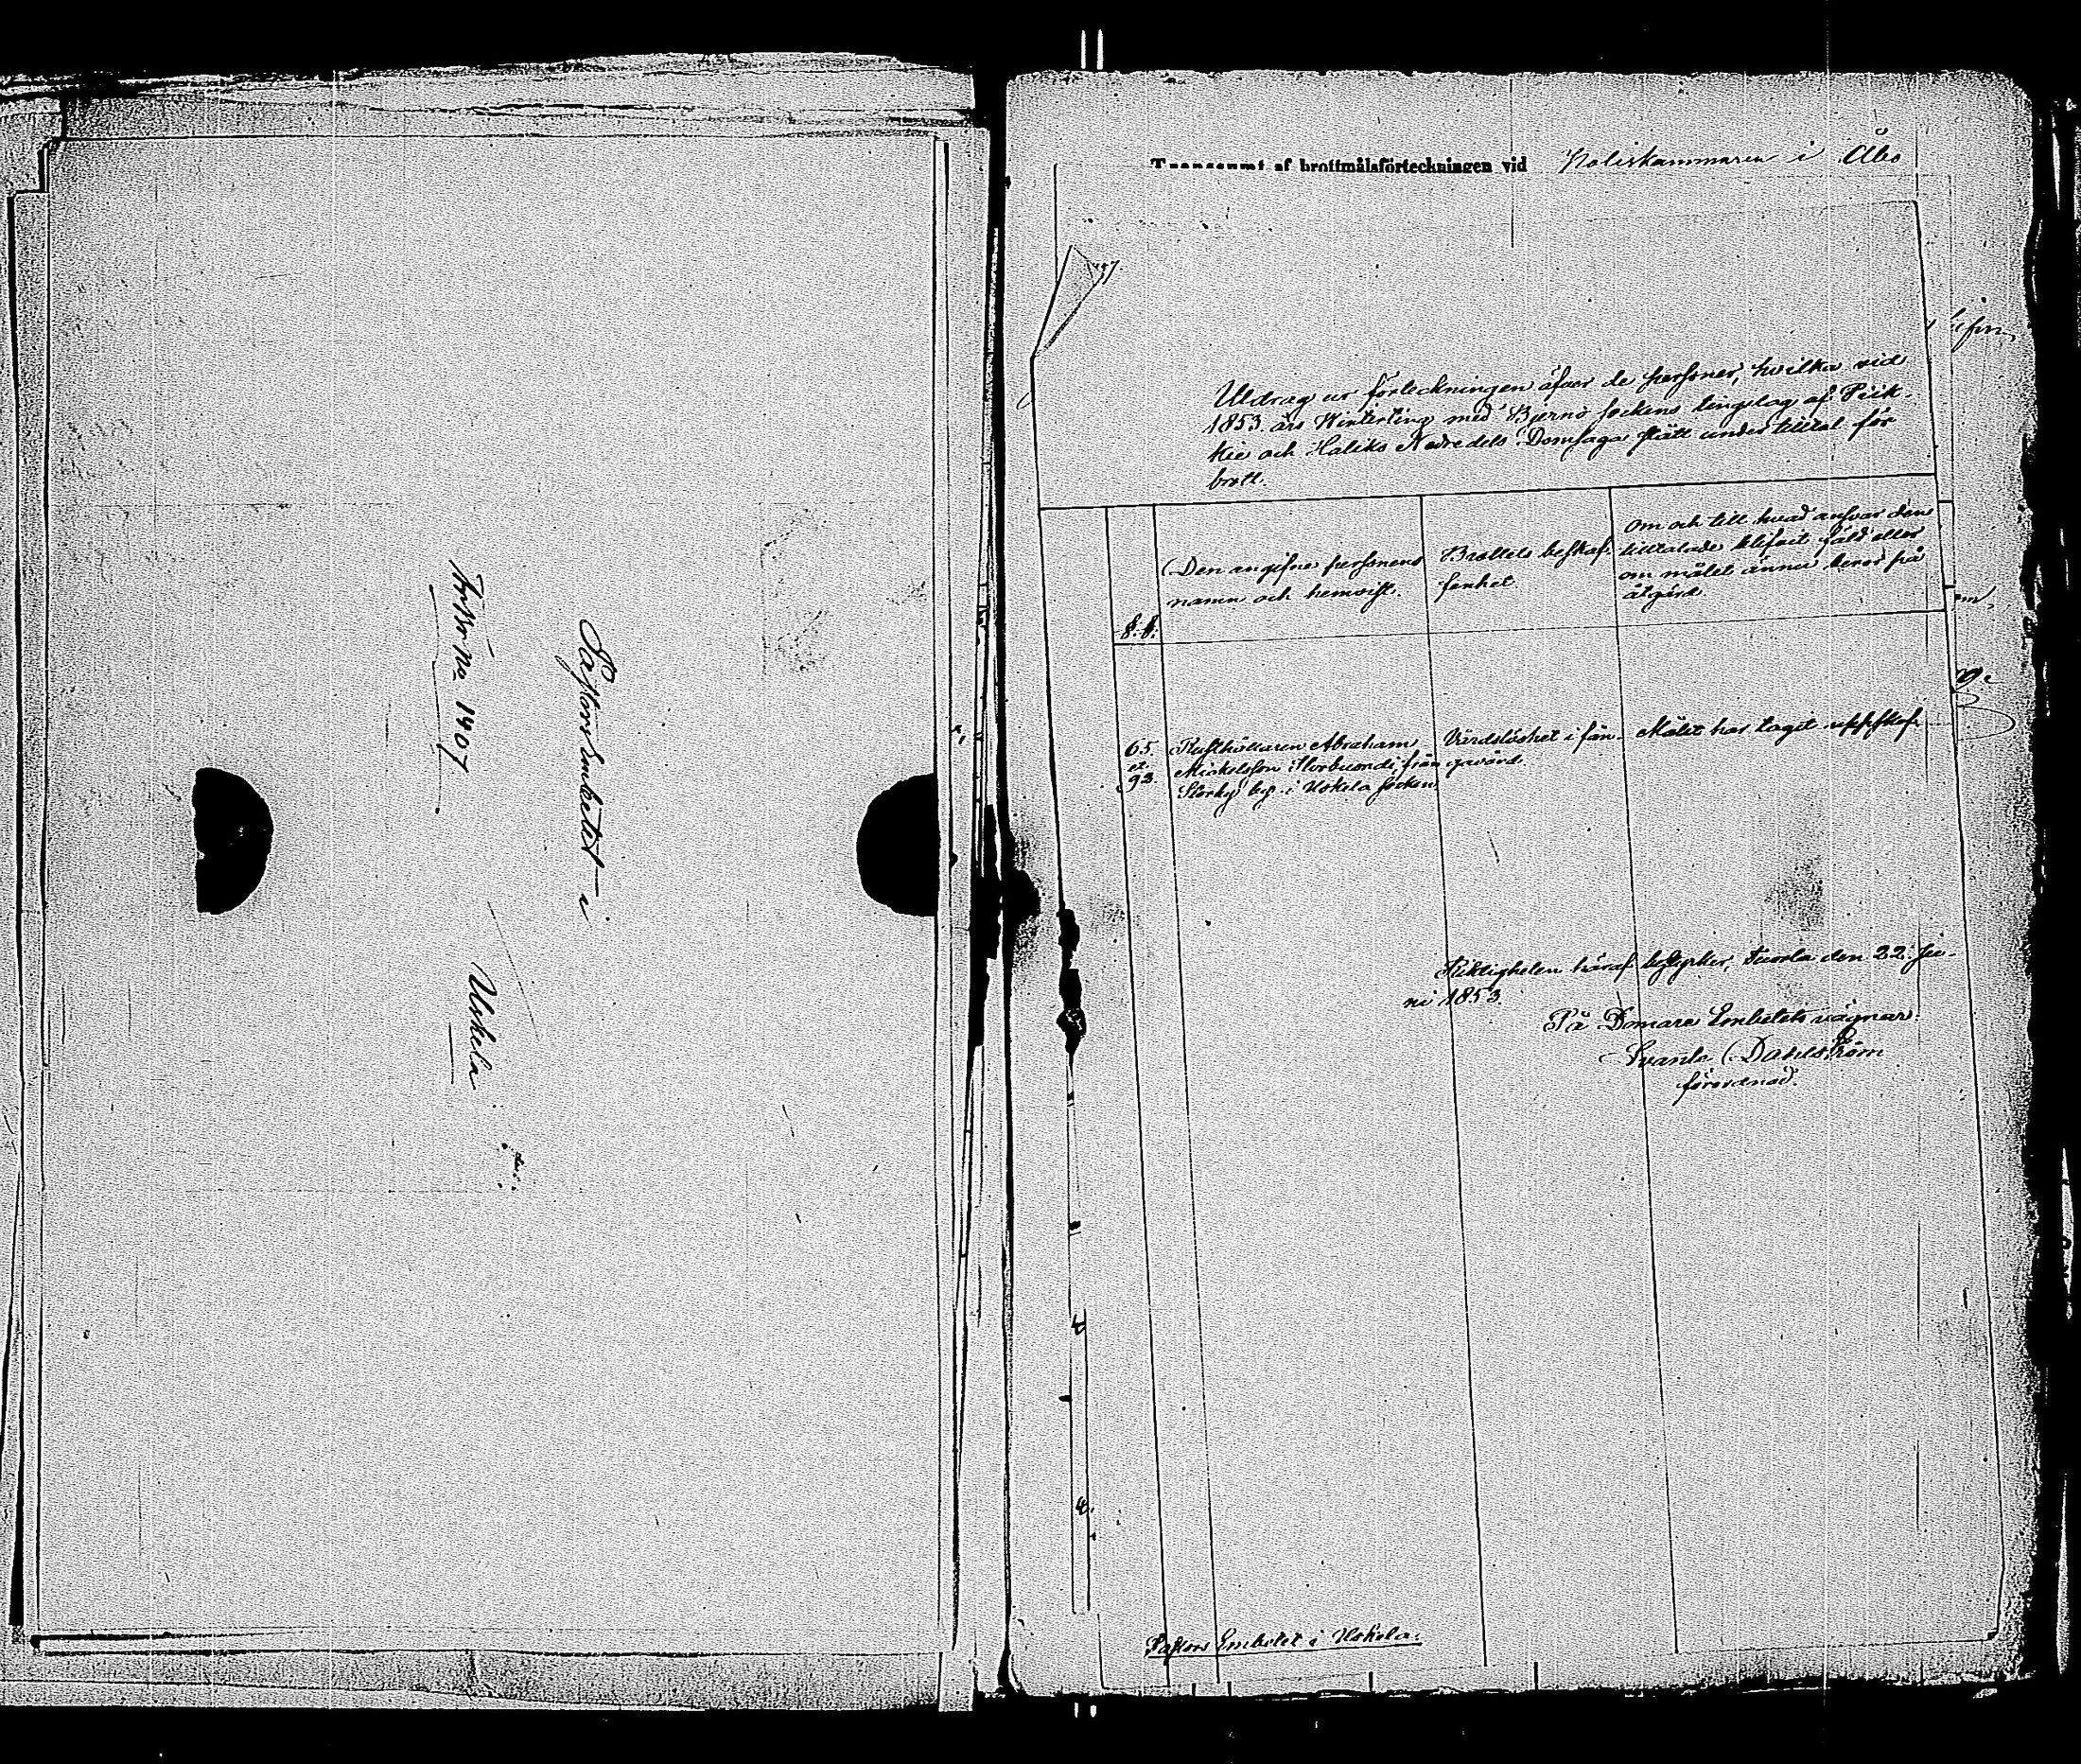 Pastors Embetet i
Uskela
No 1407
af brottmålsförteckningen vid Poliskammaren i Åbo
Utdrag ur förteckningen öfver de personer, hvilka vid
1853. års Winterting med Bjerno sockens tingslag af Piik-
kie och Haliko Nedredels Domsaga stått under tilltal för
brott.
§. §.
Den angifne personens
namn och hemvist.
Brottets beskaf-
fenhet
Om och till hvad ansvar den
tilltalade blifvit fäld eller
om målet ännu beror på
åtgärd.
65.
et
93.
Rusthållaren Abraham
Mickelsson Storbuondi från
Storby by i Uskela socken.
Vårdslöshet i fån-
gavård.
Målet har tagit uppskof.
Riktigheten häraf bestyrker, Tuorla den 22. Ju-
ni 1853.
På Domare Embetets vägnar.
Svante Dahlström
förordnad.
Pastors Embetet i Uskela.